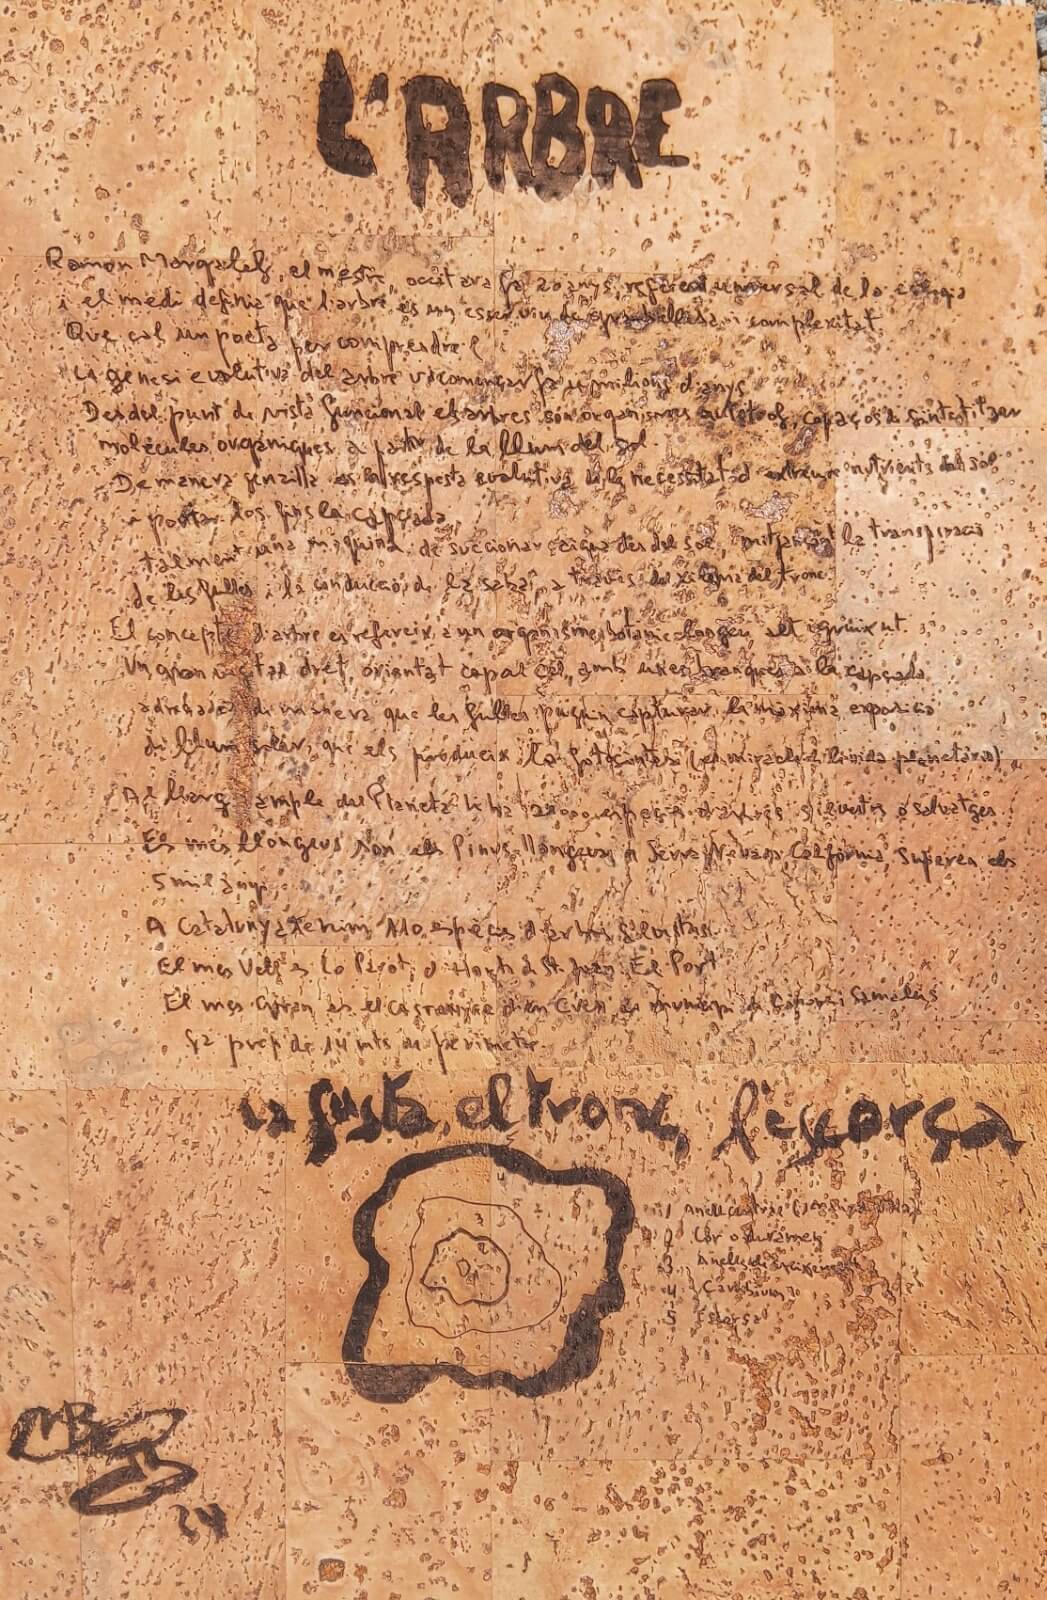 L'ARBRE
Ramon Margalef, el mestre, ara fa 20 anys, referent universal de la ecologia
i el medi definia que l'arbre és un esser viu de i complexitat.
Que cal un poeta per comprendre
La genesi evolutiva del arbre va començar fa milions d'anys
Des del punt de vista funcional els arbres són organismes capaços de sintetitzar
molècules orgàniques a partir de la llum del sol.
De manera senzilla es la resposta evolutiva de la necessitat d'extreure nutrients del sol
i portar los fins la capçada,
talment una màquina de succionar aigua des del sol, mitjançant la transpiració
de les fulles i la conducció de la saba, a través del xilema del tronc.
El concepte d'arbre es refereix a un organisme botanic longeu, alt i gruixut.
Un gran vegetal dret, orientat cap al cel, amb unes branques a la capçada
adreçades de manera que les fulles puguin capturar la màxima exposició
de llum solar, que els produeix la fotosintesi
Al llarg i ample del Planeta hi ha especies d'arbres silvestres o salvatges
Els mes llongeus son els Pinus a Serra Nevada California, superen els
5 mil anys
A Catalunya tenim 110 especies d'arbres silvestres.
El mes Vell es Lo Parot, d'Horta de St. Joan.
El mes gran es el castanyer d'en Cuch, municipi de Cànoves i Samalús
fa prop de 14 mts de perimetre
La fusta, el tronc, l'escorça
1 Anell central
2 Cor o duramen
3 Anells de creixement
4 Cambium
5 Escorça
24